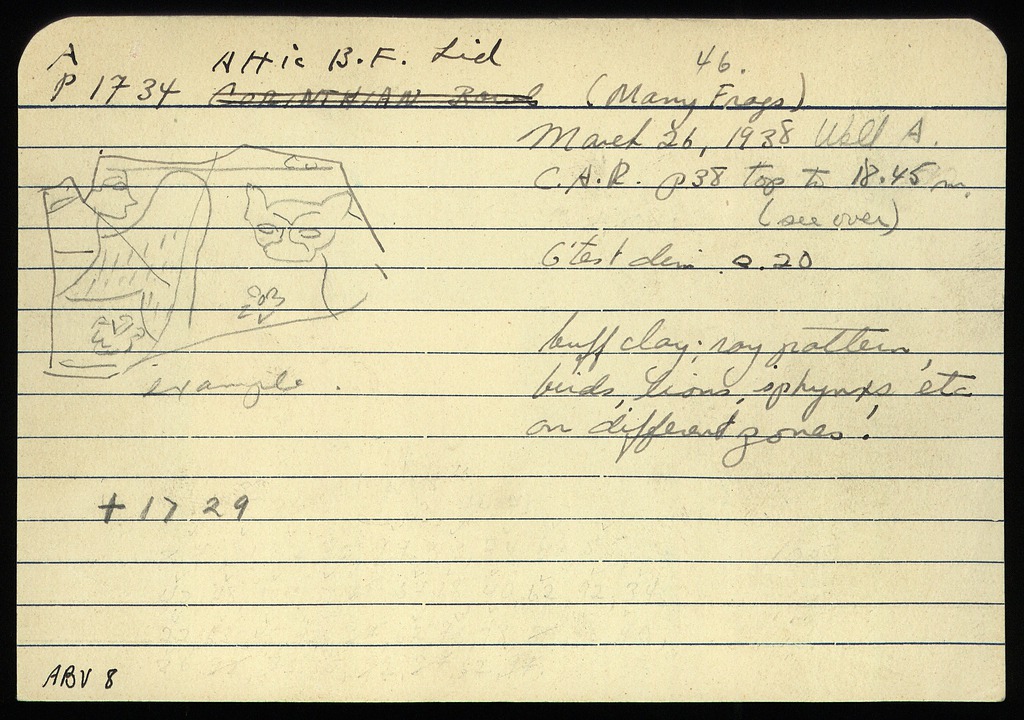 A Attic B.F. Lid 46.
P 1734 CORINTHIAN Bowl (Many Frags)
March 26, 1938 Well A.
C.A.R. p38 top to 18.45 m.
(see over)
G'test dim 0.20
buff clay; ray pattern,
birds, lions, sphynxs, etc
on different zones.
example.
+ 1729
ABV 8